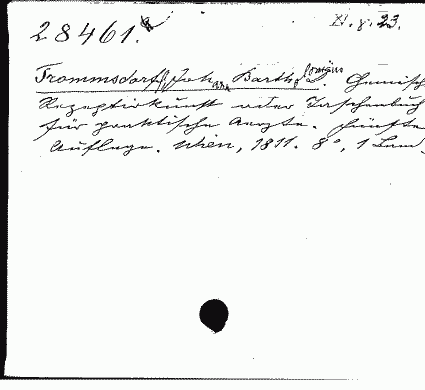 28461.
XI. γ. 23.
Trommsdorff, Johann Barthlomäus. Chemisch
Rezeptirkunst oder Taschenbuch
für praktische Aerzte. Fünfte
Auflage. Wien, 1811. 8°, 1 Band.